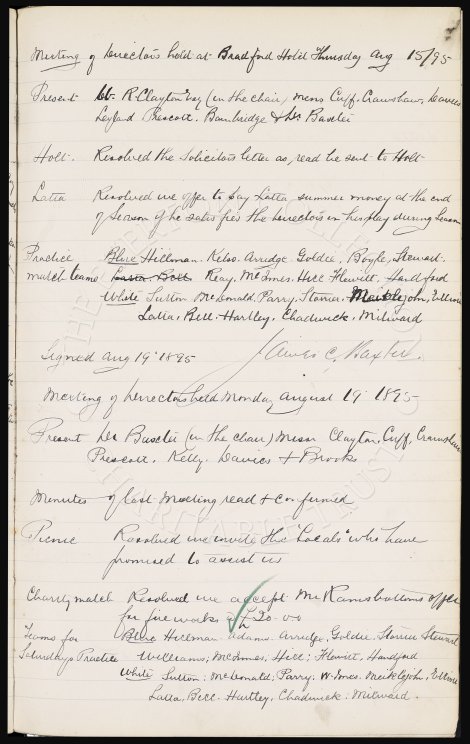 Meeting of Directors held at Bradford Hotel Thursday Aug 15/95
Present W. R. Clayton Esq (in the chair) Messrs Cuff, Crawshaw, Davies
Leyland Prescott. Bainbridge & Dr Baxter
Holt. Resolved the Solicitors letter as, read be sent to Holt
Latta Resolved we offer to pay Latta summer money at the end
of Season if he satisfies the Directors in his play during Season
Practice Blue Hillman. Kelso. Arridge. Goldie, Boyle, Stewart.
match teams Latta. Bell Reay, McInnes. Hill Flewitt, Handford
White Sutton McDonald, Parry, Storrier Meiklejohn, Elliott
Latta, Bell. Hartley, Chadwick, Milward
Signed Aug 19' 1895 James C, Baxter.
Meeting of Directors held Monday August 19' 1895
Present Dr Baxter (in the chair) Messrs Clayton, Cuff, Crawshaw
Prescott. Kelly. Davies & Brooks
Minutes of last Meeting read & confirmed
Picnic Resolved we invite the "Locals" who have
promised to assist us
Charity match Resolved we accept Mr Ramsbottoms offer
for fireworks £20-0-0
Teams for Blue Hillman. Adams. Arridge, Goldie. Storrier Stewart
Saturdays Practice Williams; McInnes; Hill; Flewitt, Handford
White Sutton; McDonald; Parry; W. Jones. Meiklejohn, Elliott
Latta, Bell. Hartley. Chadwick. Milward.
THE
CHARITABLE TRUST